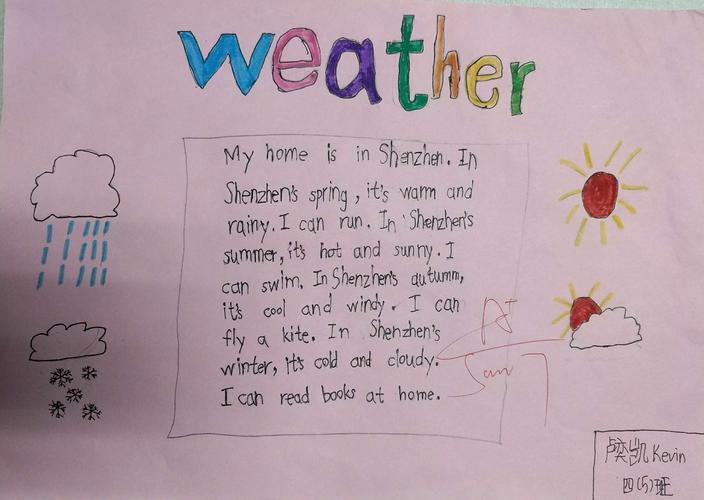 weather
My home is in Shenzhen. In
Shenzhen's spring, it's warm and
rainy. I can run. In Shenzhen's
summer, it's hot and sunny. I
can swim. In Shenzhen's autumn,
it's cool and windy. I can
fly a kite. In Shenzhen's
winter, it's cold and cloudy.
I can read books at home.
A+
Jan 7
卢奕凯 Kevin
四(5)班